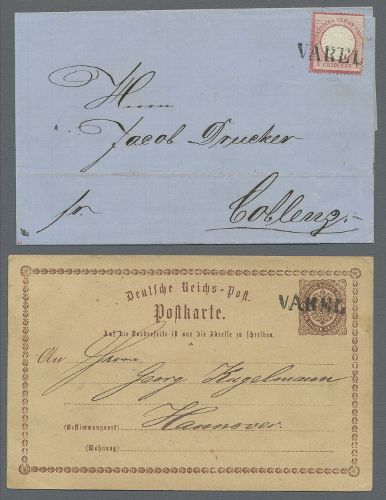 VAREL
Herrn
Jacob Drucker
fr. Coblenz.
Deutsche Reichs-Post.
Postkarte.
VAREL
Auf die Vorderseite ist nur die Adresse zu schreiben.
An Herrn
Georg Kugelmann
(Bestimmungsort) Hannover.
(Wohnung)